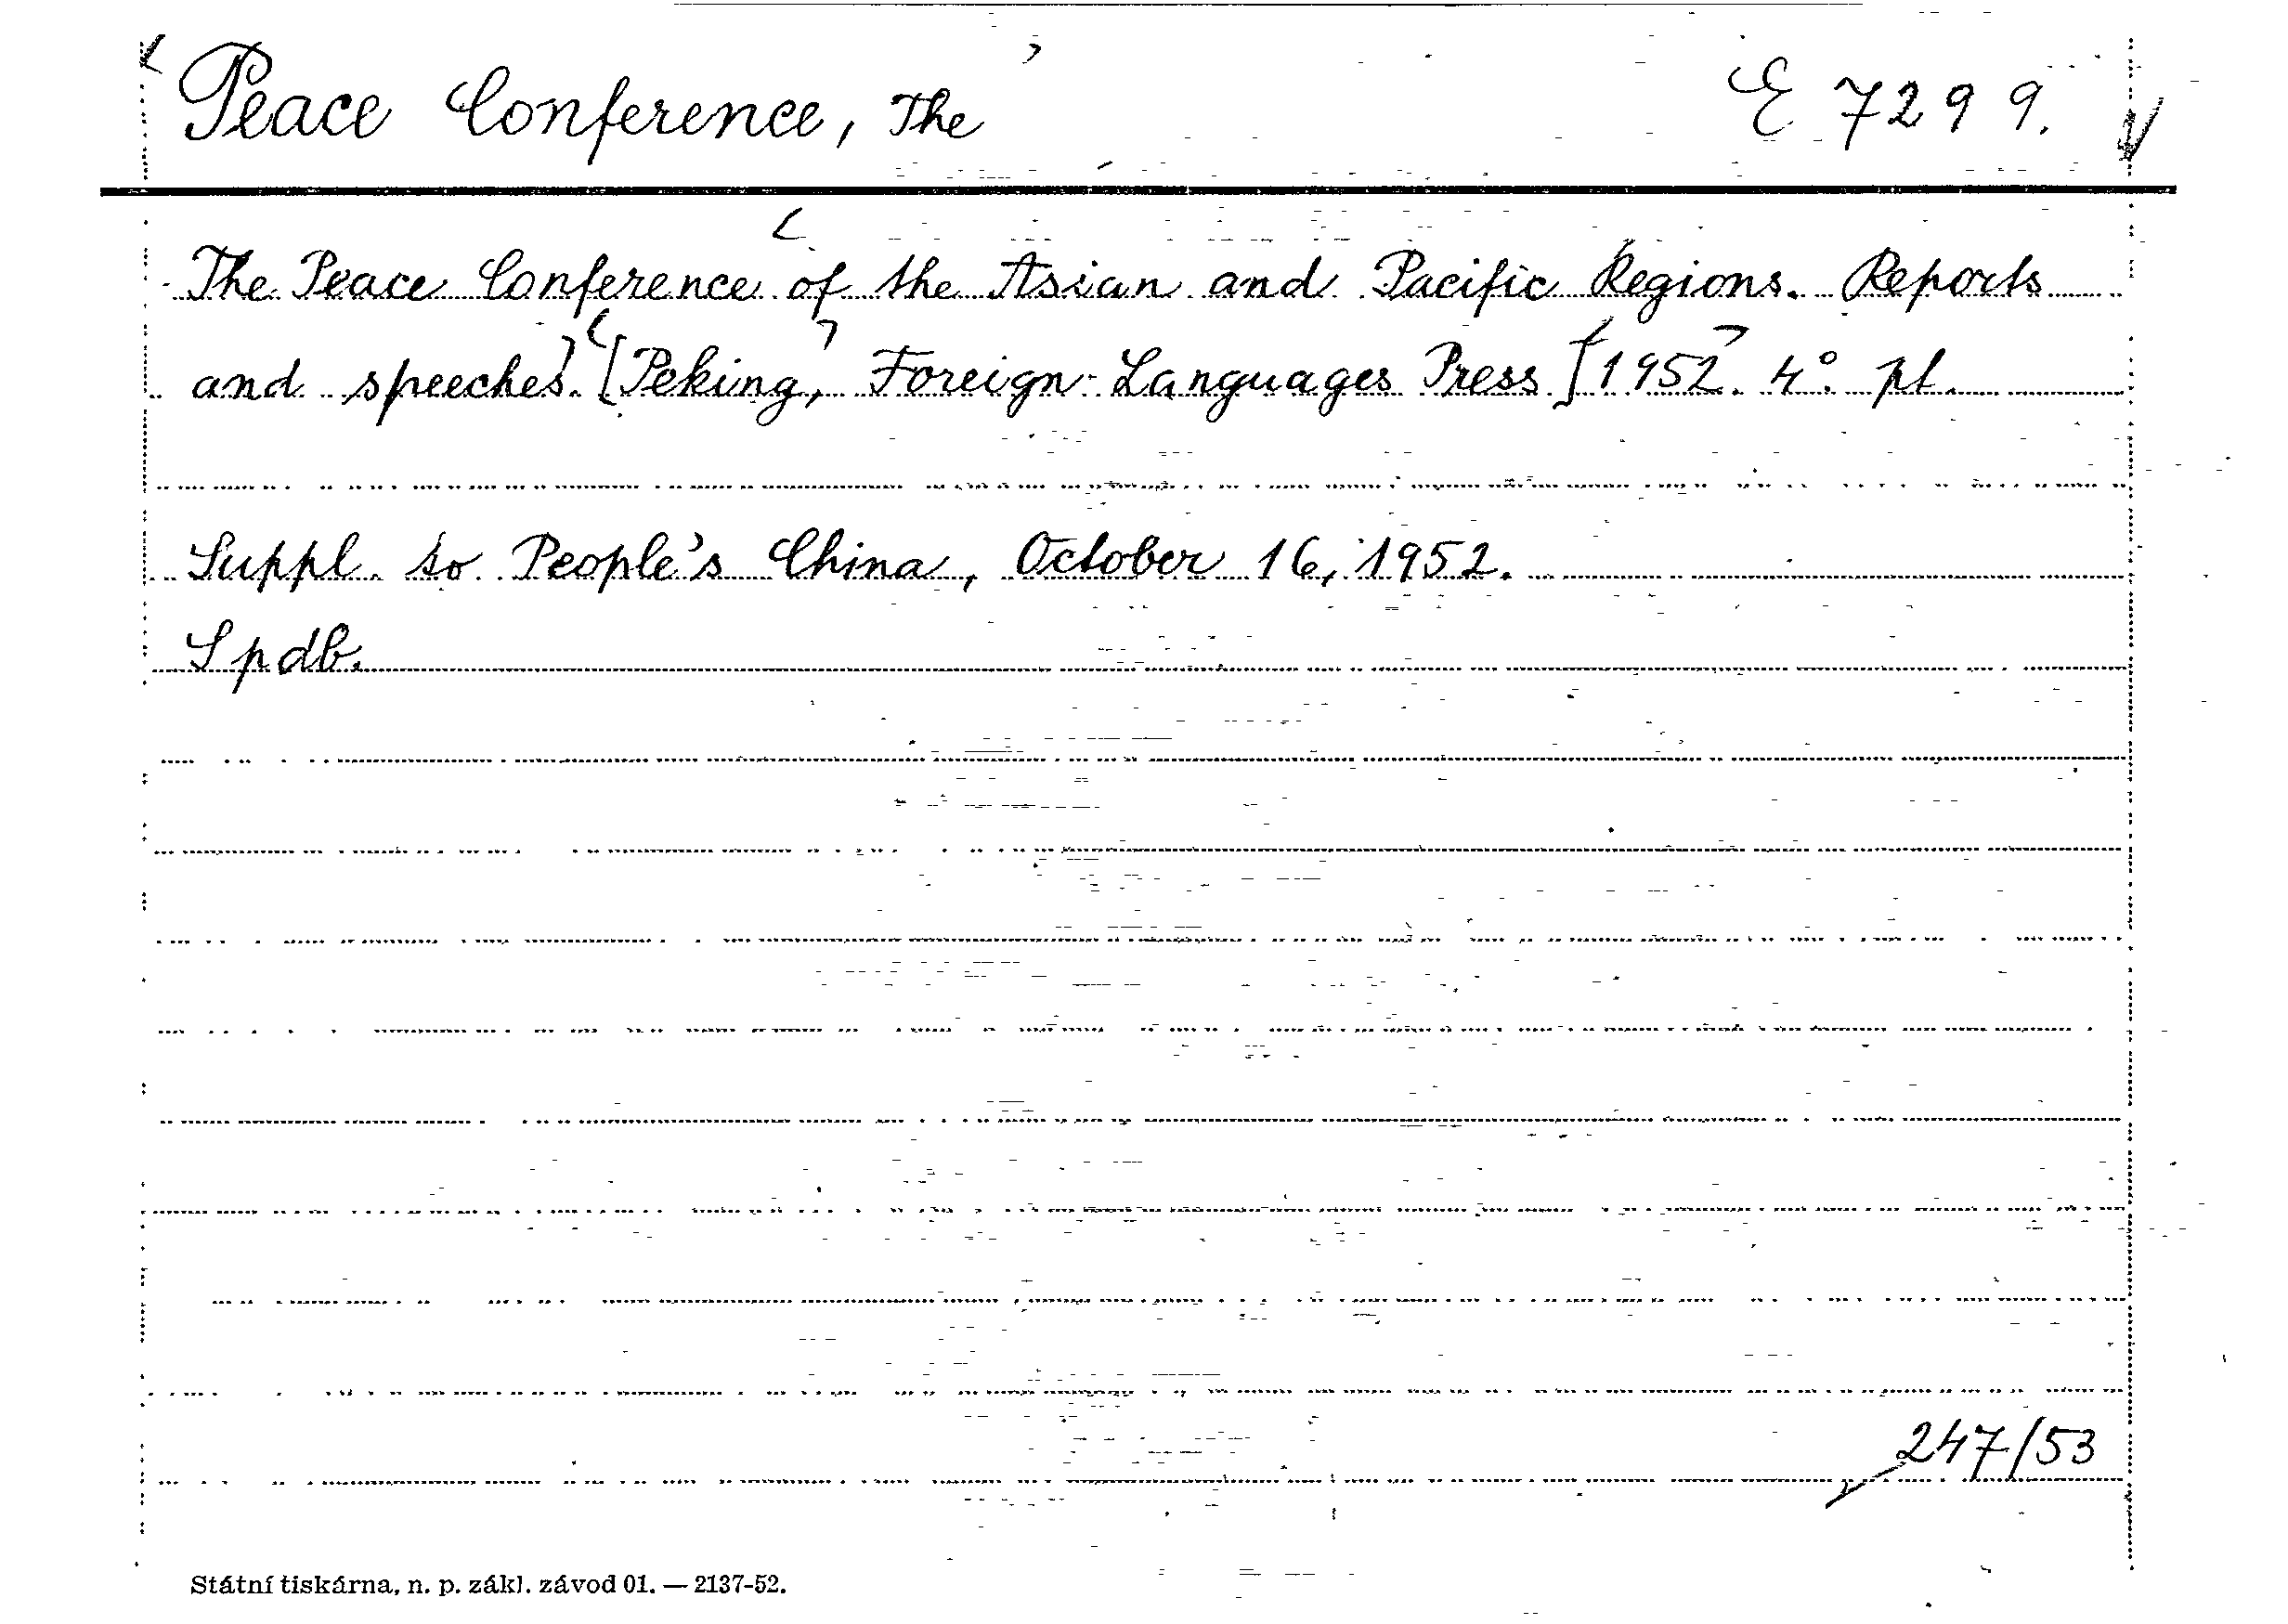 Peace Conference, The E 7299.
The Peace Conference of the Asian and Pacific Regions. Reports
and speeches. [Peking, Foreign Languages Press] 1952. 4°. pl.
Suppl. to People's China, October 16, 1952.
Spdb.
247/53
Státní tiskárna, n. p. zákl. závod 01. — 2137-52.